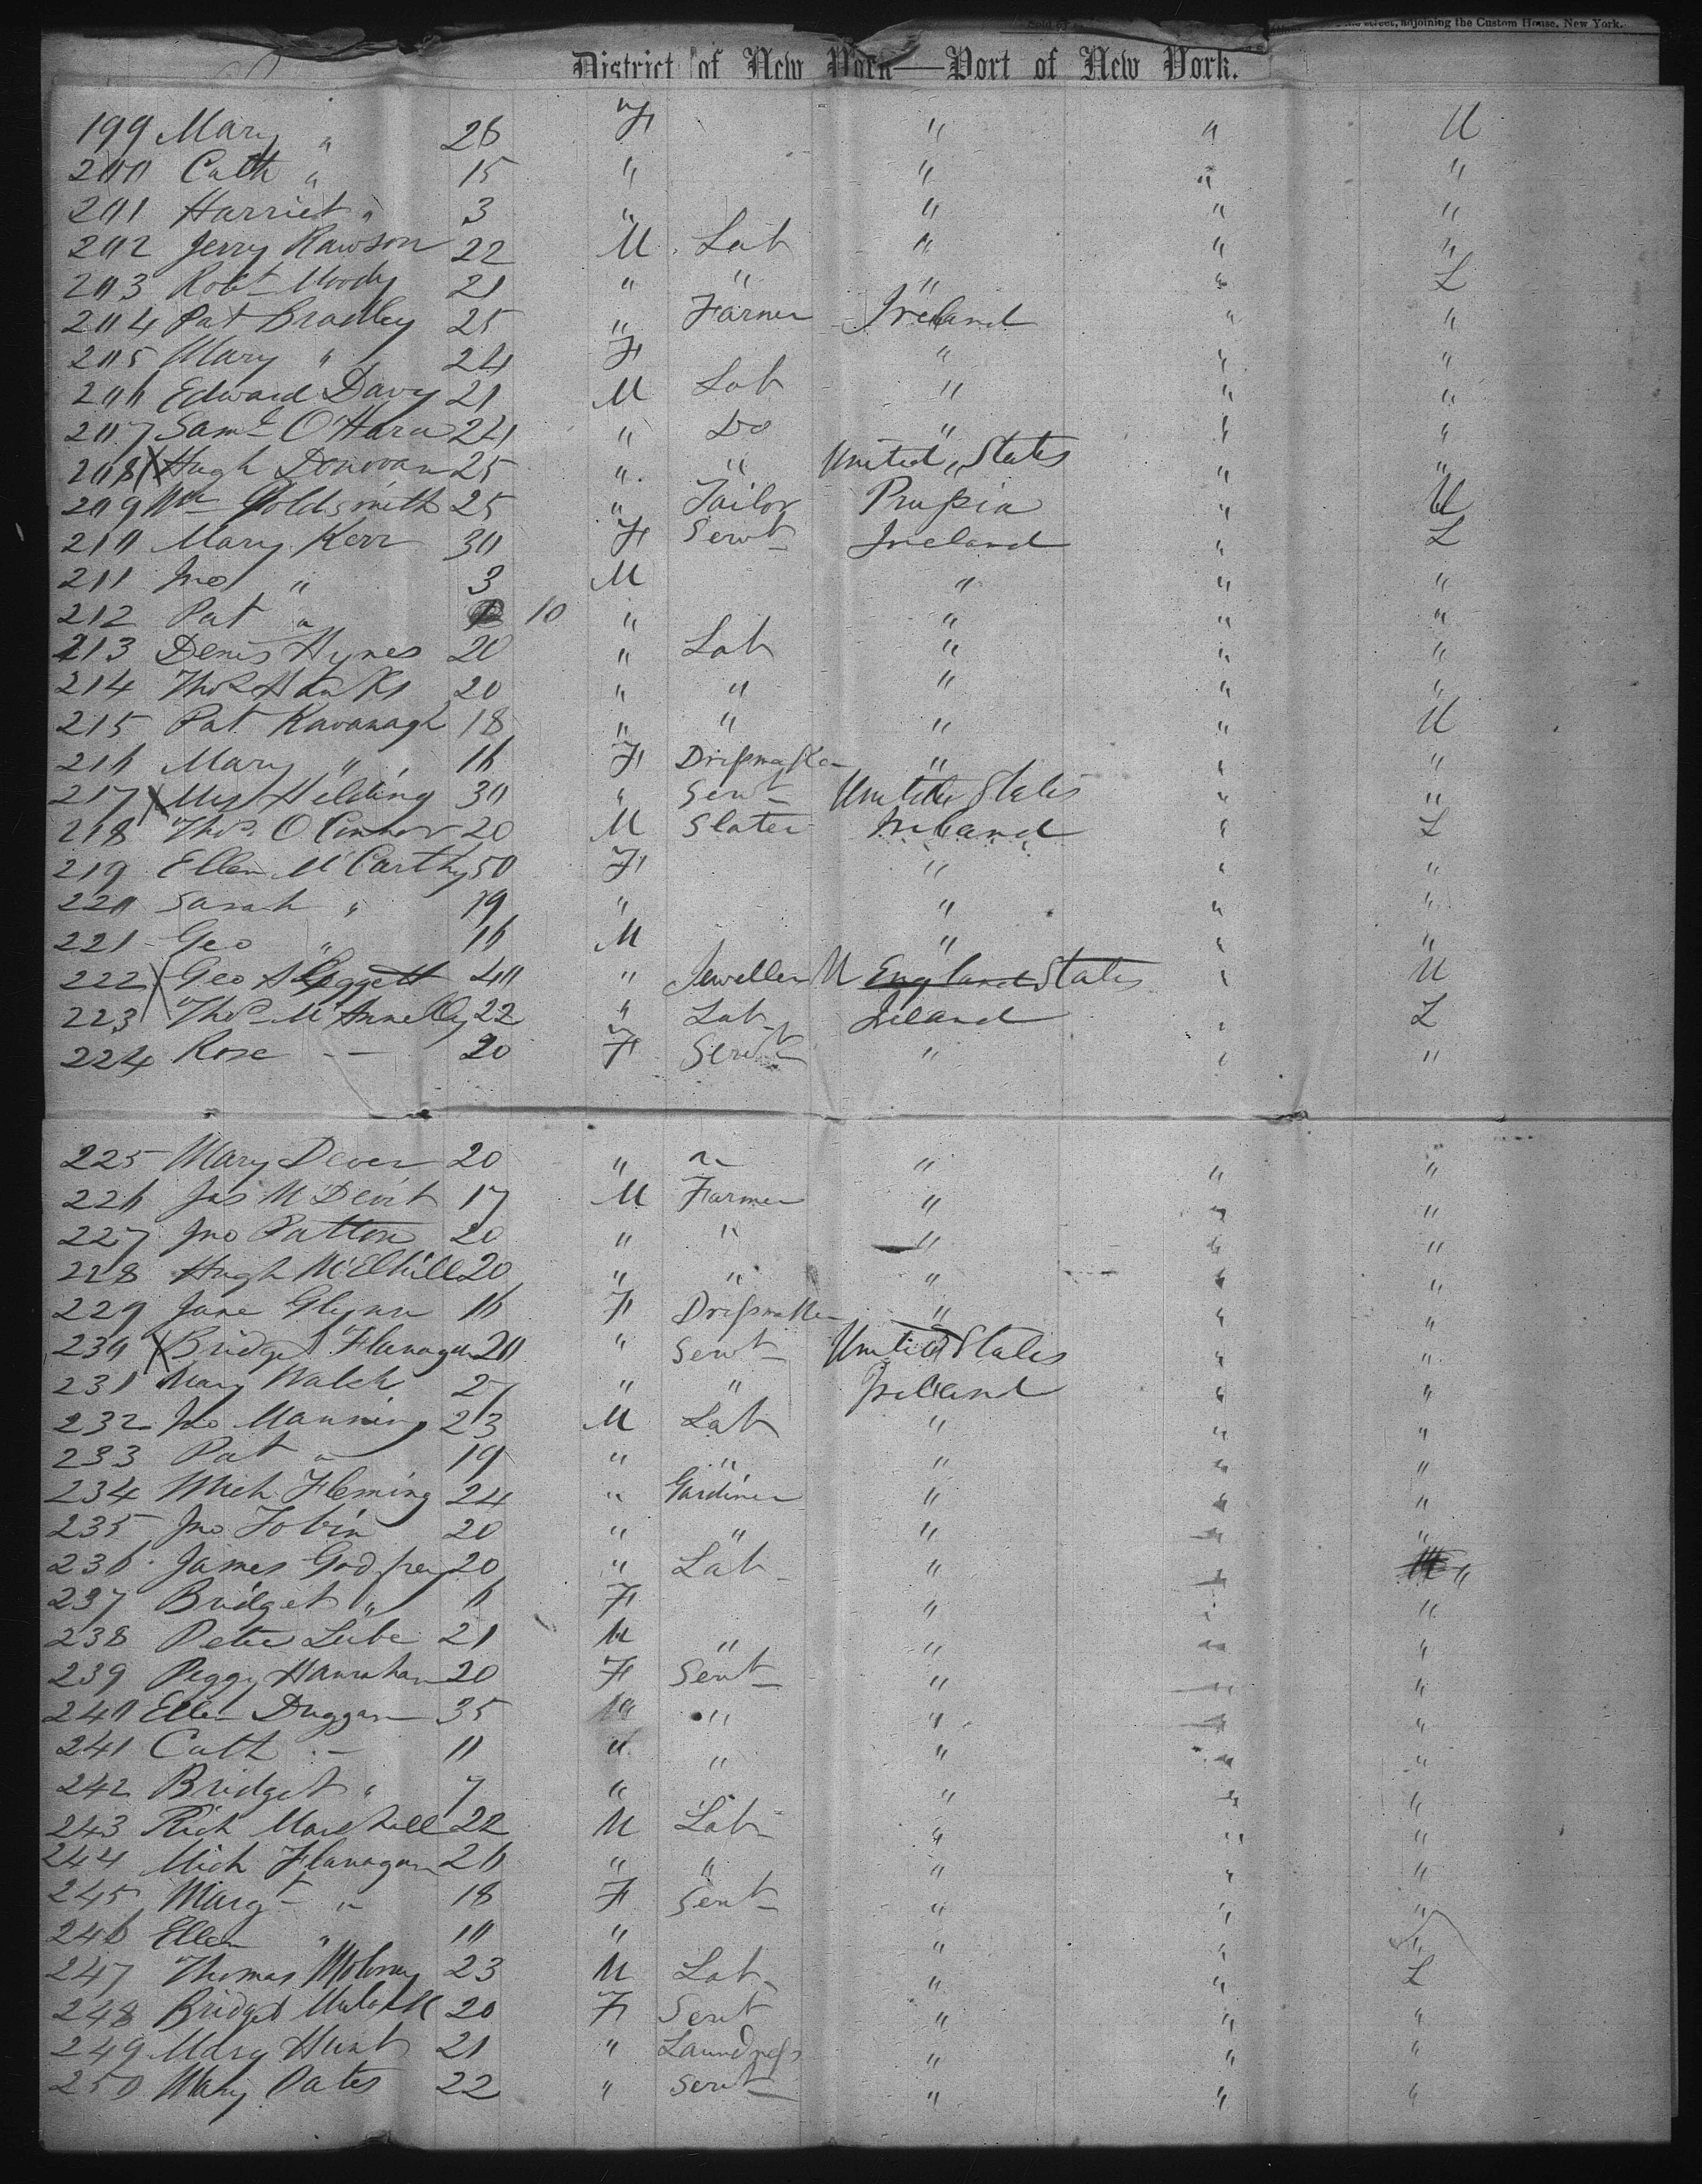 Street, adjoining the Custom House, New York.
District of New York—Port of New York.
199 Mary " 26 F " " U
200 Cath " 15 " " " "
201 Harriet " 3 " " " "
202 Jerry Rawson 22 M Lab " " "
203 Robt Moody 21 " " " " L
204 Pat Bradley 25 " Farmer Ireland " "
205 Mary " 24 F " " "
206 Edward Davy 21 M Lab " " "
207 Saml O'Hara 24 " Do " " "
208 X Hugh Donovan 25 " " United States " "
209 Wm Goldsmith 25 " Tailor Prussia " U
210 Mary Kerr 30 F Servt Ireland " L
211 Jno " 3 M " " "
212 Pat " 10 " " " "
213 Denis Hynes 20 " Lab " " "
214 Thos Hanks 20 " " " " "
215 Pat Kavanagh 18 " " " " U
216 Mary " 16 F Dressmaker " " "
217 X Helding 30 " Servt United States " "
218 Thos O'Connor 20 M Slater Ireland " L
219 Ellen McCarthy 50 F " " "
220 Sarah " 19 " " " "
221 Geo " 16 M " " "
222 X Geo Leggett 40 " Jeweller U England States " U
223 Thos McAnnelly 22 " Lab Ireland " L
224 Rose — 20 F Servt " " "
225 Mary Dever 20 " " " " "
226 Jas McDevit 17 M Farmer " " "
227 Jno Patton 20 " " " " "
228 Hugh McElhill 20 " " " " "
229 Jane Glynn 16 F Dressmaker " " "
230 X Bridget Flanagan 20 " Servt United States " "
231 Mary Walsh 27 " " Ireland " "
232 Jno Manning 23 M Lab " " "
233 Pat " 19 " " " " "
234 Mich Fleming 24 " Gardiner " " "
235 Jno Tobin 20 " " " " "
236 James Godfrey 20 " Lab " " "
237 Bridget " 6 F " " "
238 Peter 21 M " " " "
239 Peggy Hanrahan 20 F Servt " " "
240 Ellen Duggan 35 " " " "
241 Cath — 11 " " " " "
242 Bridget " 7 " " " "
243 Rich Marshall 22 M Lab " " "
244 Mich Flanagan 26 " " " " "
245 Margt " 18 F Servt " " "
246 Ellen " 10 " " " "
247 Thomas Molony 23 M Lab " " L
248 Bridget 20 F Servt " " "
249 Mary Hunt 21 " Laundress " " "
250 Mary Oates 22 " Servt " " "